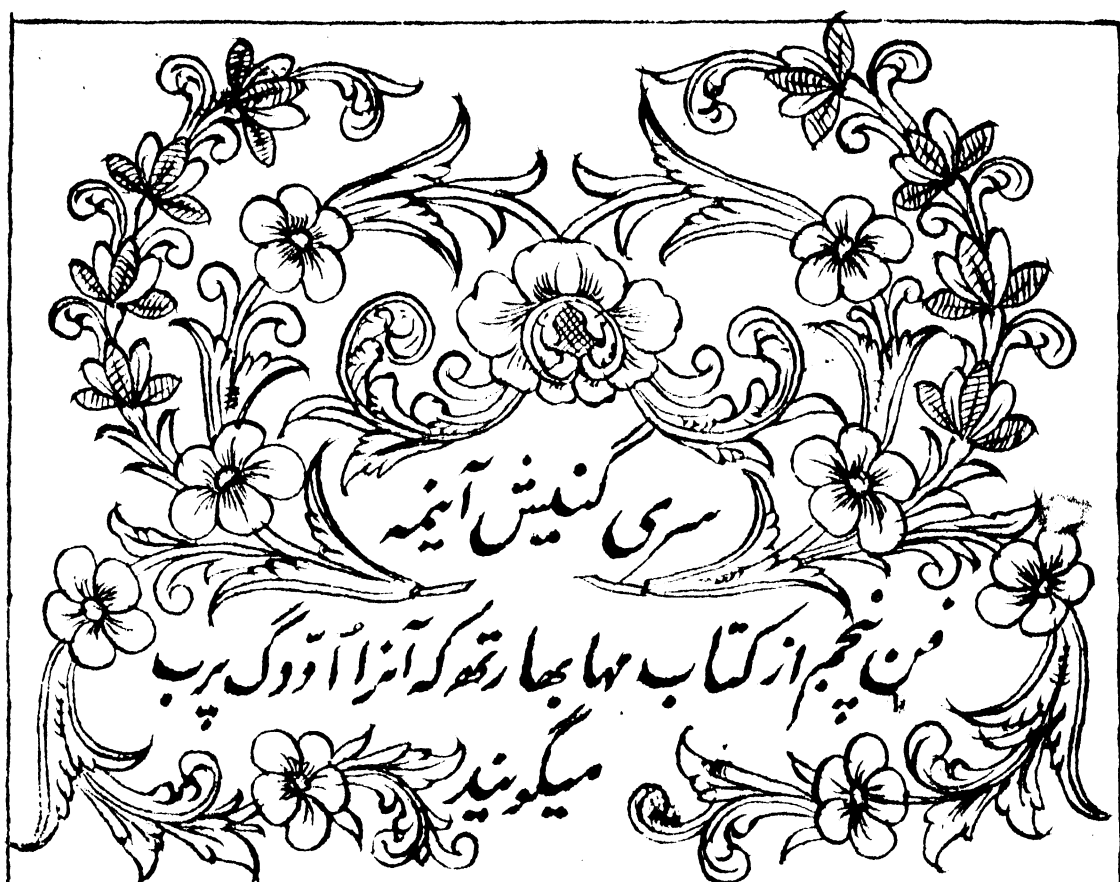 سری گنیش آینمه
فن پنجم از کتاب مهابهارتهہ که آنرا اُدّوگ پرب
میگویند